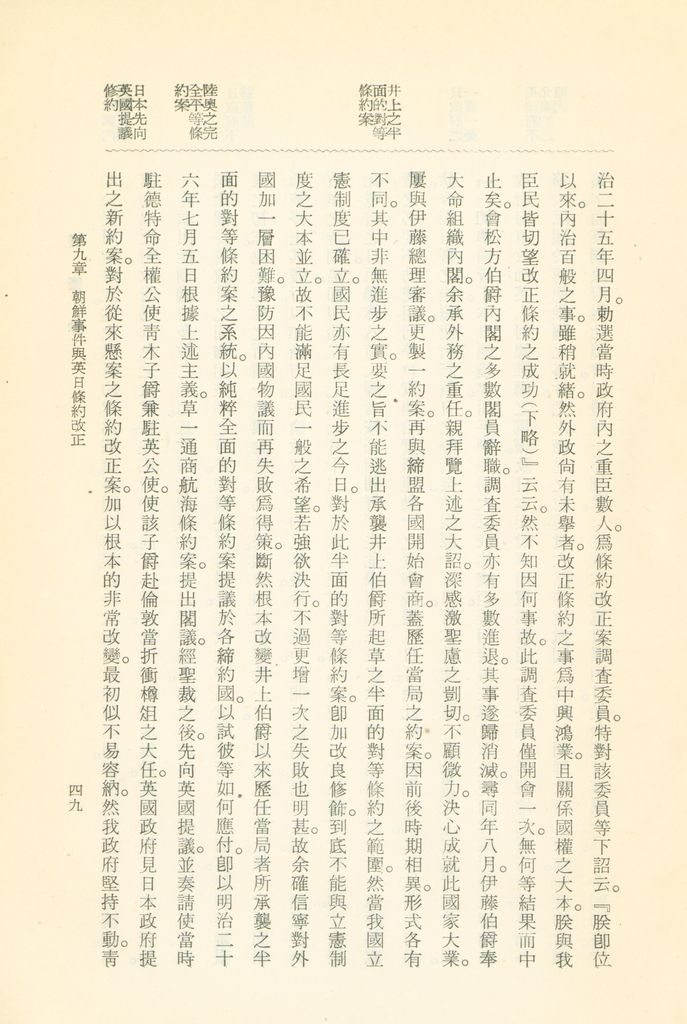 井上之半
面的對等
條約案
陸奧之完
全平等條
約案
日本先向
英國提議
修約
治二十五年四月。勅選當時政府內之重臣數人。爲條約改正案調查委員。特對該委員等下詔云。『朕卽位
以來。內治百般之事。雖稍就緖。然外政尙有未擧者。改正條約之事。爲中興鴻業。且關係國權之大本。朕與我
臣民皆切望改正條約之成功(下略)』云云。然不知因何事故。此調查委員僅開會一次。無何等結果而中
止矣。會松方伯爵內閣之多數閣員辭職。調查委員亦有多數進退。其事遂歸消滅。尋同年八月。伊藤伯爵奉
大命組織內閣。余承外務之重任。親拜覽上述之大詔。深感激聖慮之剴切。不顧微力。決心成就此國家大業。
屢與伊藤總理審議。更製一約案。再與締盟各國開始會商。蓋歷任當局之約案。因前後時期相異。形式各有
不同。其中非無進步之實。要之旨不能逃出承襲井上伯爵所起草之半面的對等條約之範圍。然當我國立
憲制度已確立。國民亦有長足進步之今日。對於此半面的對等條約案。卽加改良修飾。到底不能與立憲制
度之大本並立。故不能滿足國民一般之希望。若強欲決行。不過更增一次之失敗也明甚。故余確信寧對外
國加一層困難。豫防因內國物議而再失敗爲得策。斷然根本改變井上伯爵以來歷任當局者所承襲之半
面的對等條約案之系統。以純粹全面的對等條約案提議於各締約國。以試彼等如何應付。卽以明治二十
六年七月五日根據上述主義。草一通商航海條約案。提出閣議。經聖裁之後。先向英國提議。並奏請使當時
駐德特命全權公使靑木子爵兼駐英公使。使該子爵赴倫敦當折衝樽俎之大任。英國政府見日本政府提
出之新約案。對於從來懸案之條約改正案。加以根本的非常改變。最初似不易容納。然我政府堅持不動。靑
第九章　朝鮮事件與英日條約改正
四九